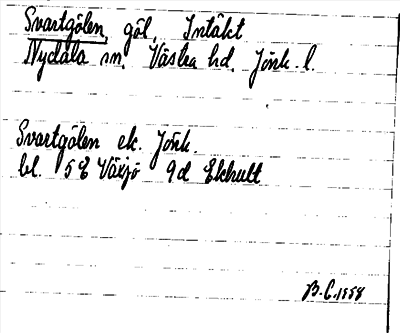 Svartgölen, göl, Intäkt
Nydala sn. Västra hd. Jönk. l.
Svartgölen ek. Jönk.
bl. 5E Växjö 9d Ekhult
B. C. 1998